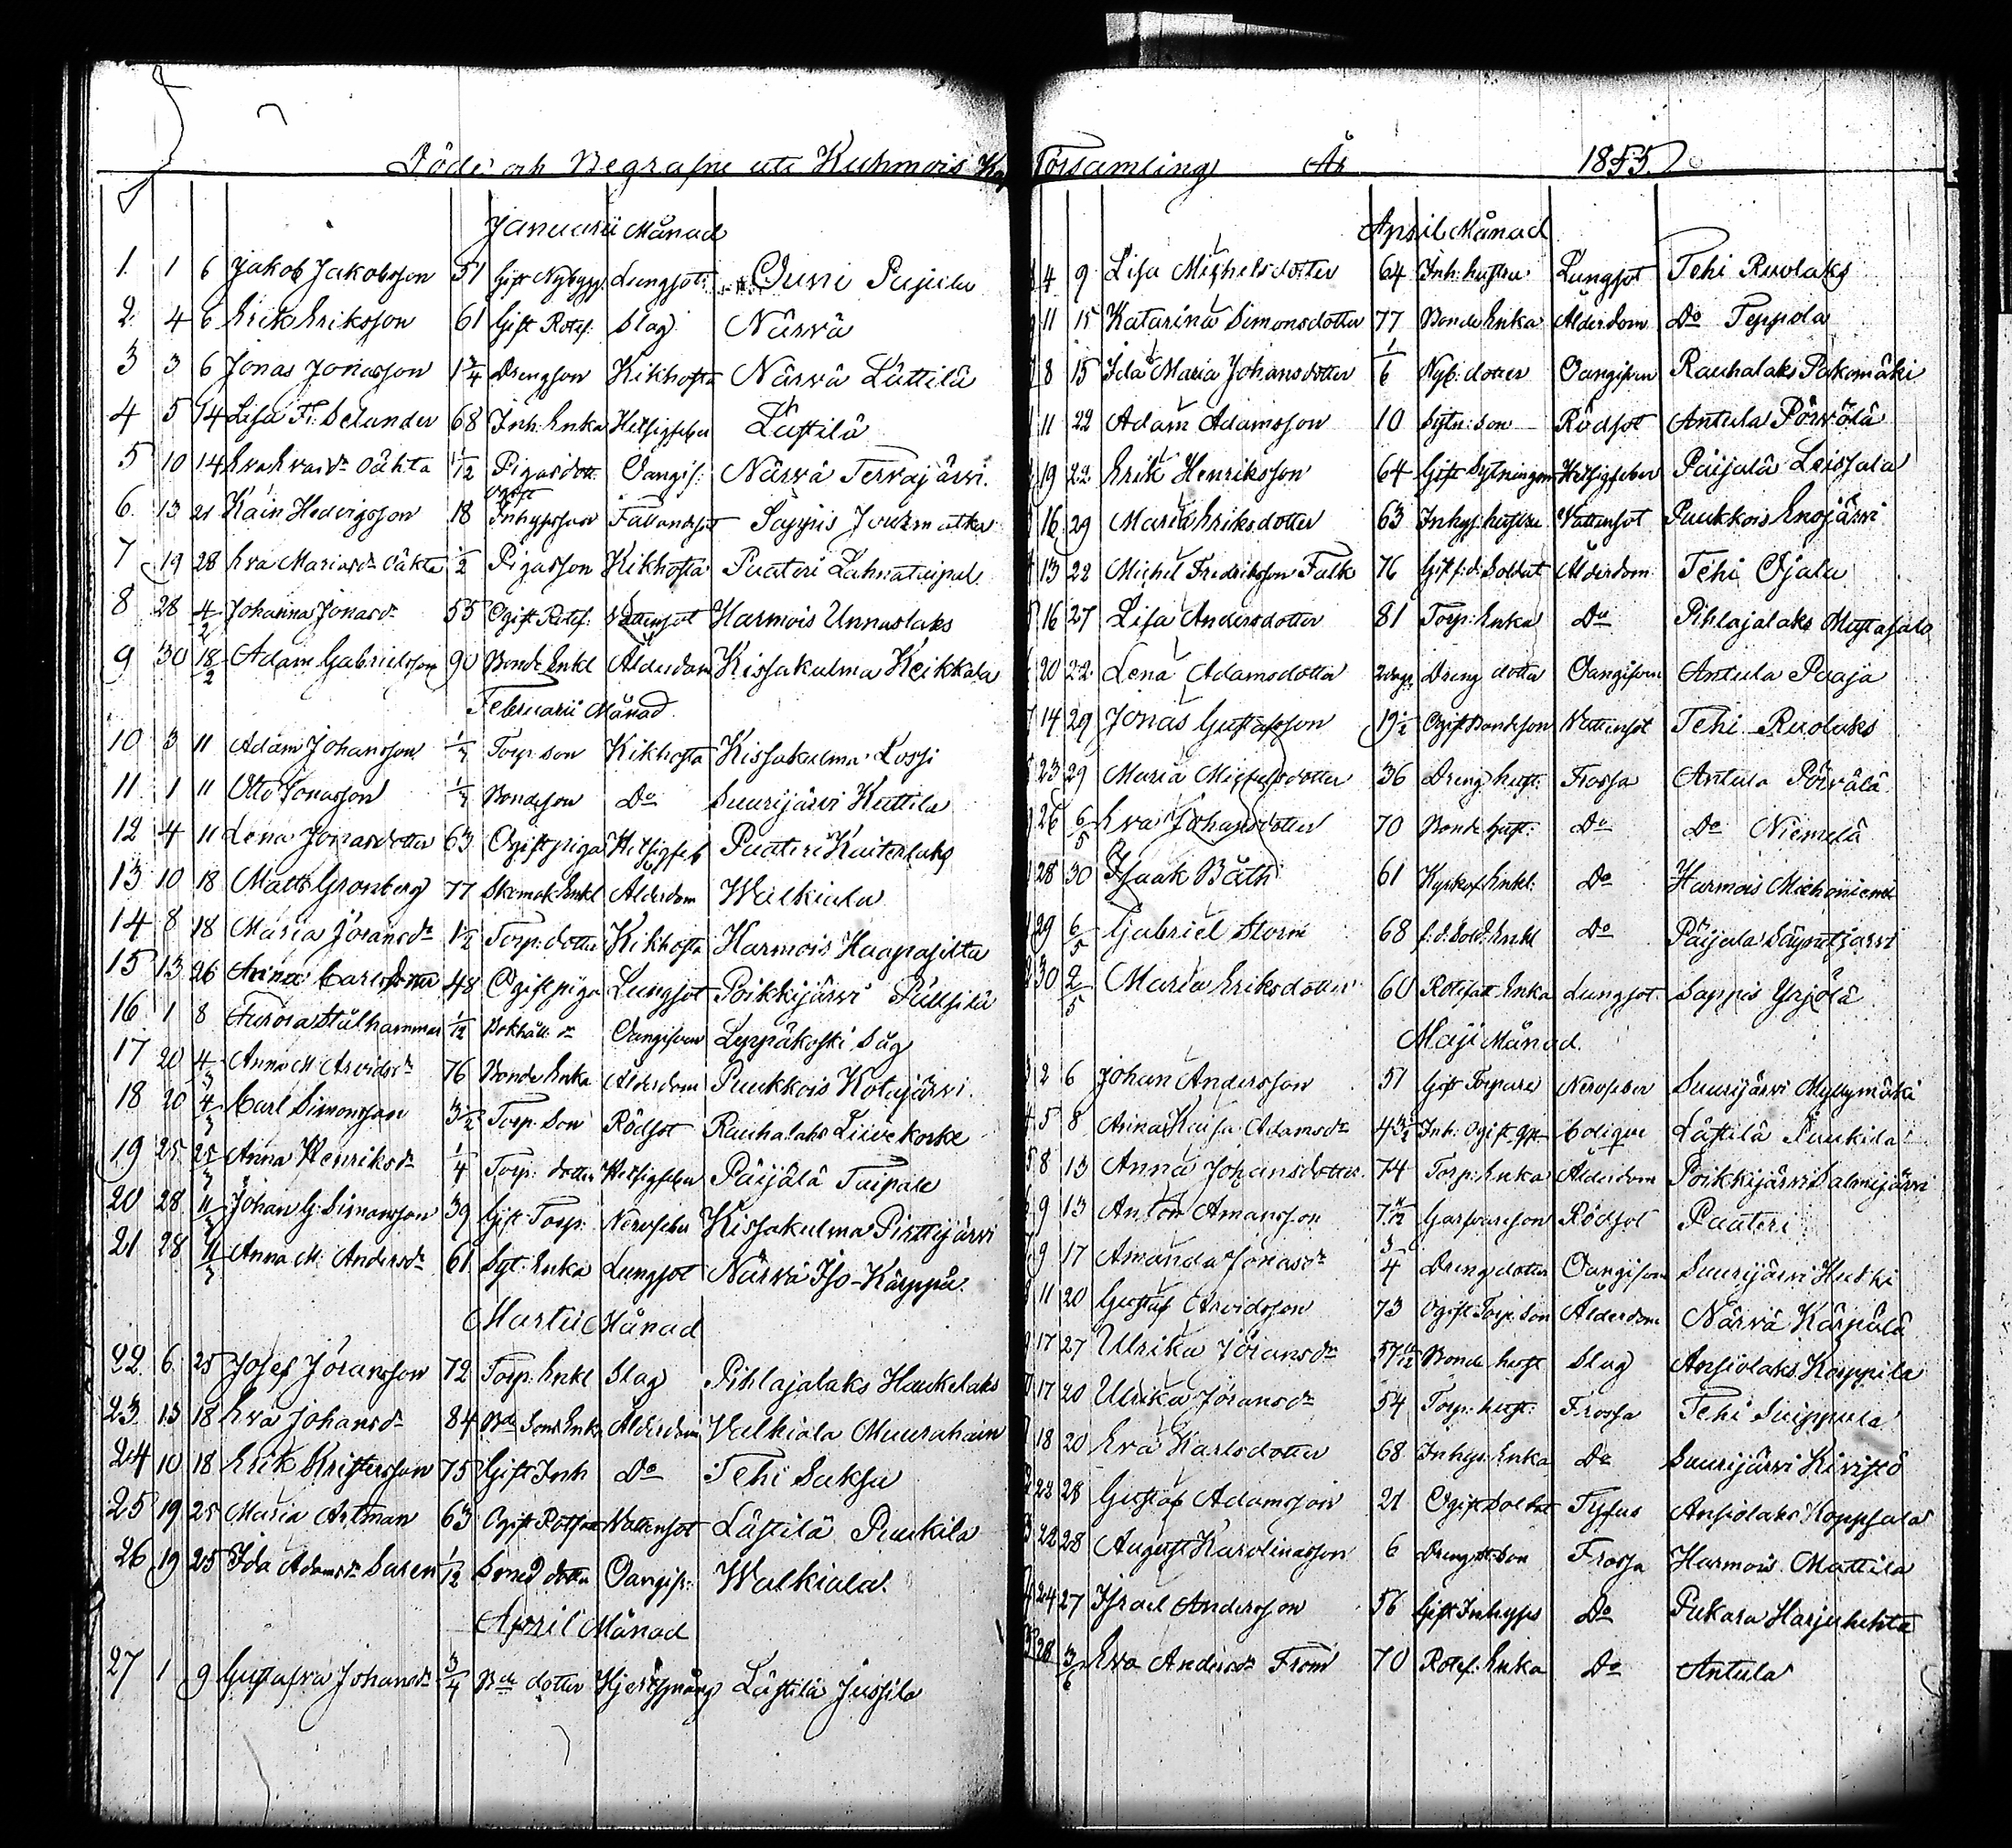 Döde och Begrafne uti Kuhmois Kap Församling År 1855
Januarii Månad
1 1 6 Jakob Jakobsson 51 Gift Nybygg. Lungsot Pujula
2 4 6 Erik Eriksson 61 Gift Rotef. Slag Närvä
3 3 6 Jonas Jonasson 1 3/4 Drengson Kikhosta Närvä Lättilä
4 5 14 Lisa Fr. Selander 68 Inh. Enka Hetsigfeber Lästilä
5 10 14 Eva Evasdr oächta 1/12 Pigas dott. Oangif. Närvä Tervajärvi
6 13 21 Kain Hedvigsson 18 Ogift Inhysson Fallandesot Sappis
7 19 28 Eva Mariasdr Oäkta 1/2 Pigas Kikhosta Puateri Lahnataipal
8 28 4/2 Johanna Jonasdr 55 Ogift Rotef. Vattensot Harmois Unnaslaks
9 30 18/2 Adam Gabrielsson 90 Bonde Enkl Ålderdom Kissakulma Keikkala
Februarii Månad
10 3 11 Adam Johansson Torp. Son Kikhosta Kissakulma Lossi
11 1 11 Otto Jonasson Bondeson Do Suurijärvi Kuttila
12 4 11 Lena Jonasdotter 63 Ogift piga Hetsigfeb Puateri Kaiterlaks
13 10 18 Matts Gronberg 77 Skomak Enkl Ålderdom Walkiala
14 8 18 Maria Jöransdr 1 1/2 Torp. dotter Kikhosta Harmois Haapasilta
15 13 26 Anna Carlsdotter 48 Ogift piga Lungsot Poikkijärvi Pällilä
16 1 8 Furora Stålhammar 1/12 Bokhåll. dr Oangifven Leppäkoski Såg
17 20 4/3 Anna M. Arvidsdr 76 Bonde Enka Ålderdom Puukkois Kotajärvi
18 20 4/3 Carl Simonsson 3 1/2 Torp. Son Rödsot Rauhalaks Liivekorke
19 25 25/3 Anna Henriksdr 1/4 Torp. dotter Hetsigfeber Päijälä Taipale
20 28 11/3 Johan G. Simonsson 39 Gift Torp. Nervfeber Kissakulma Pirttijärvi
21 28 11/3 Anna M. Andersdr 61 Syt. Enka Lungsot Närvä Iso-Kärppä
Martii Månad
22 6 25 Josef Jöransson 72 Torp. Enkl Slag Pihlajalaks Haukelaks
23 13 18 Eva Johansdr 84 Bde Sons Enka Ålderdom Valkiala Muurahain
24 10 18 Erik Kristersson 75 Gift Inh Do Tehi Saksa
25 19 25 Maria Artman 63 Ogift Vattensot Lästilä Puukila
26 19 25 Ida Adamsdr Saren 1/2 Smed dotter Oangif. Walkiala
April Månad
27 1 9 Gustafva Johansdr 3/4 Bde dotter Hjertsprång Lästilä Jussila
April Månad
4 9 Lisa Michelsdotter 64 Inh. hustru Lungsot Tehi Ruolaks
11 15 Katarina Simonsdotter 77 Bonde Enka Ålderdom Do Teppola
8 15 Ida Maria Johansdotter 1/6 Nyb. dotter Oangifven Rauhalaks Pakomäki
11 22 Adam Adamsson 10 Sytn. Son Rödsot Antula Pörvölä
19 22 Erik Henriksson 64 Gift Sytningsm Hetsigfeber Päijälä Leissala
16 29 Maria Eriksdotter 63 Inhys. hustru Vattensot Puukkois Enojärvi
13 22 Michel Fredriksson Falk 76 Gift f.d. Soldat Ålderdom Tehi Ojala
16 27 Lisa Andersdotter 81 Torp. Enka Do Pihlajalaks Mustasalo
20 22 Lena Adamsdotter 2 dagr Dreng dotter Oangifven Antula Paaja
14 29 Jonas Gustafsson 19 1/2 Ogift Bondeson Vattensot Tehi Ruolaks
23 29 Maria Michelsdotter 36 Dreng hust. Frossa Antula Pörvälä
26 6/5 Eva Johansdotter 70 Bonde hust. Do Do Niemelä
28 30 Isaak Båth 61 Kyrkof. Enkl. Do Harmois Miehoniemi
29 6/5 Gabriel Storm 68 f.d. Sold. Enkl Do Päijälä
30 2/5 Maria Eriksdotter 60 Rotefatt. Enka Lungsot Sappis Yrjölä
Maji Månad
2 6 Johan Andersson 51 Gift Torpare Nervfeber Suurijärvi Myllymäki
5 8 Anna Kaisa Adamsdr Inh. Ogift Colique Lästilä Puukila
8 13 Anna Johansdotter 74 Torp. Enka Ålderdom Poikkijärvi Salmijärvi
9 13 Anton Amansson Garfvareson Rödsot Puateri
9 17 Amanda Jonasdr 3/4 Dreng dotter Oangifven Suurijärvi
11 20 Gustaf Arvidsson 73 Ogift Torp. Son Ålderdom Närvä Kärpälä
17 27 Ulrika Jöransdr Bonde hust Slag Ansiolaks Kaippila
17 20 Ulrika Jöransdr 54 Torp. hust. Frossa Tehi
18 20 Eva Karlsdotter 68 Inhys. Enka Do Suurijärvi Kivistö
22 28 Gustaf Adamsson 21 Ogift Soldat Tyfus Ansiolaks
22 28 August Karolinasson 6 Dreng Son Frossa Harmois Mattila
24 27 Israel Andersson 56 Gift Inhyses Do Pukara Harjulehto
28 3/6 Eva Andersdr From 70 Rotef. Enka Do Antula